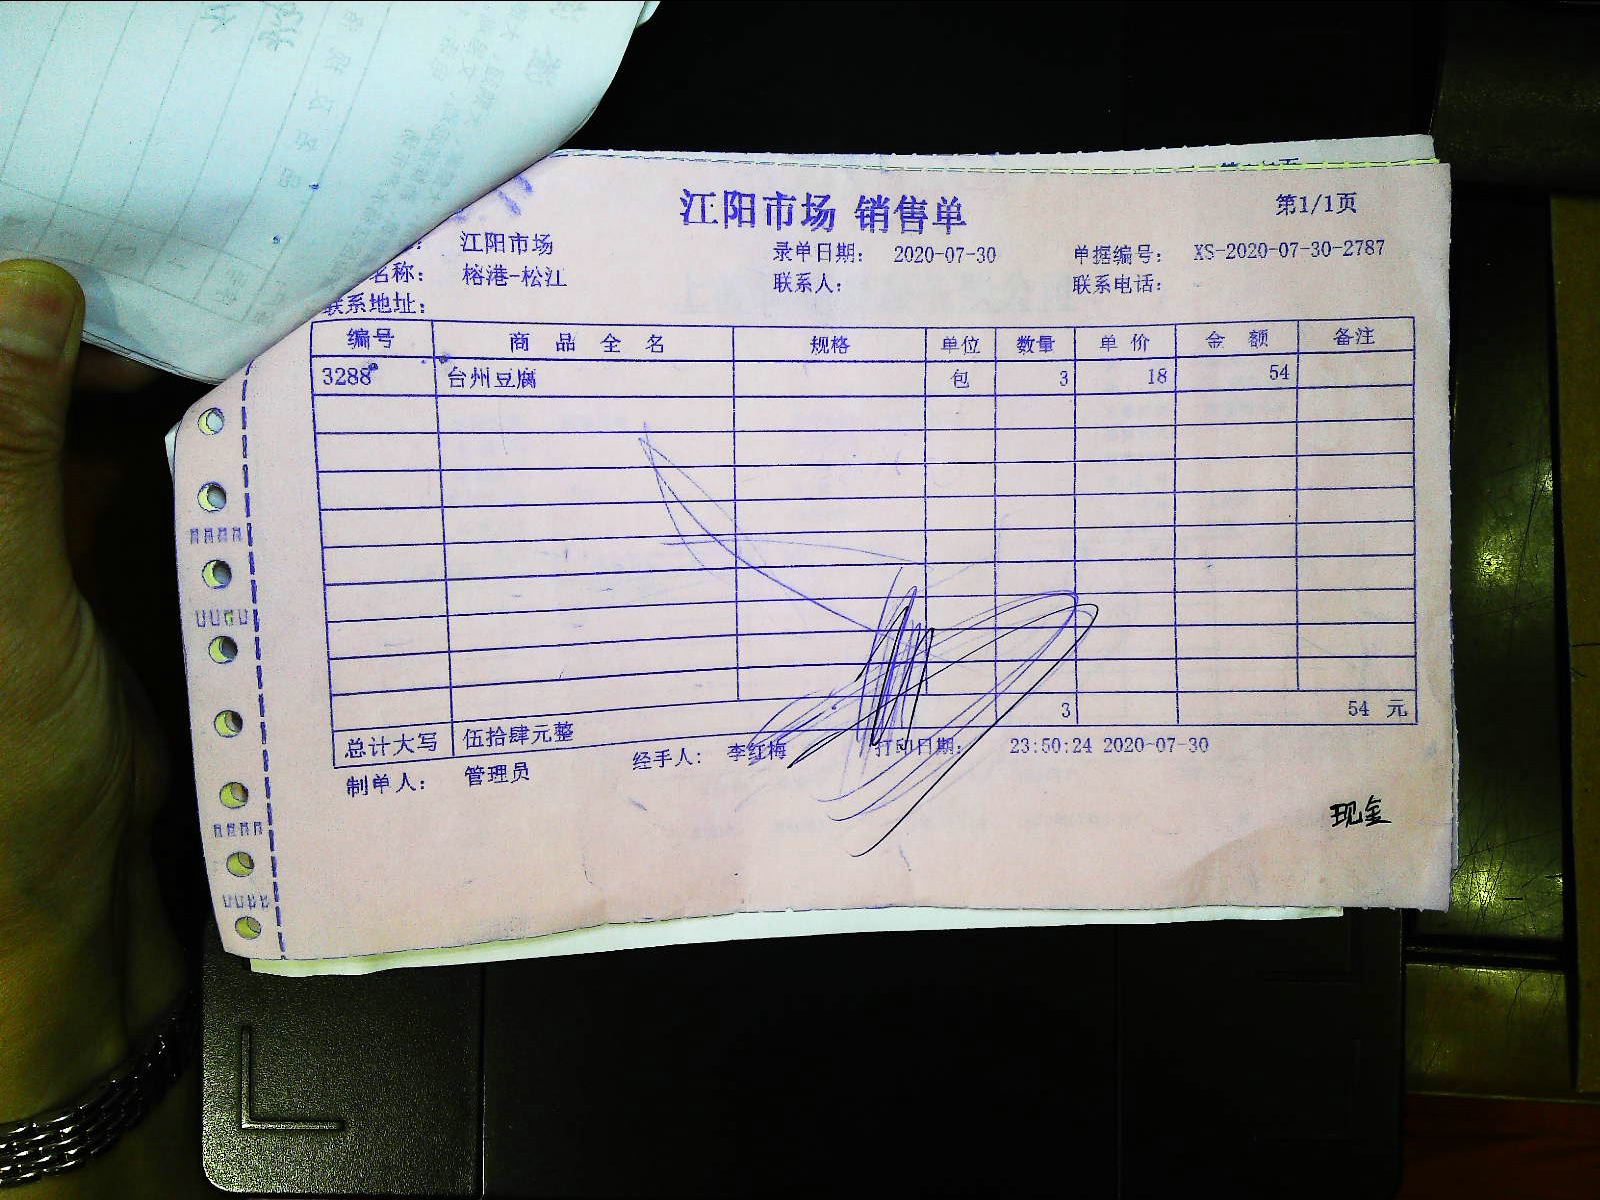 江阳市场 销售单
第1/1页
: 江阳市场 录单日期: 2020-07-30 单据编号: XS-2020-07-30-2787
名称: 榕港-松江 联系人: 联系电话:
联系地址:
编号 商品全名 规格 单位 数量 单价 金额 备注
3288 台州豆腐 包 3 18 54
3 54 元
总计大写 伍拾肆元整
制单人: 管理员 经手人: 李红梅 打印日期: 23:50:24 2020-07-30
现金